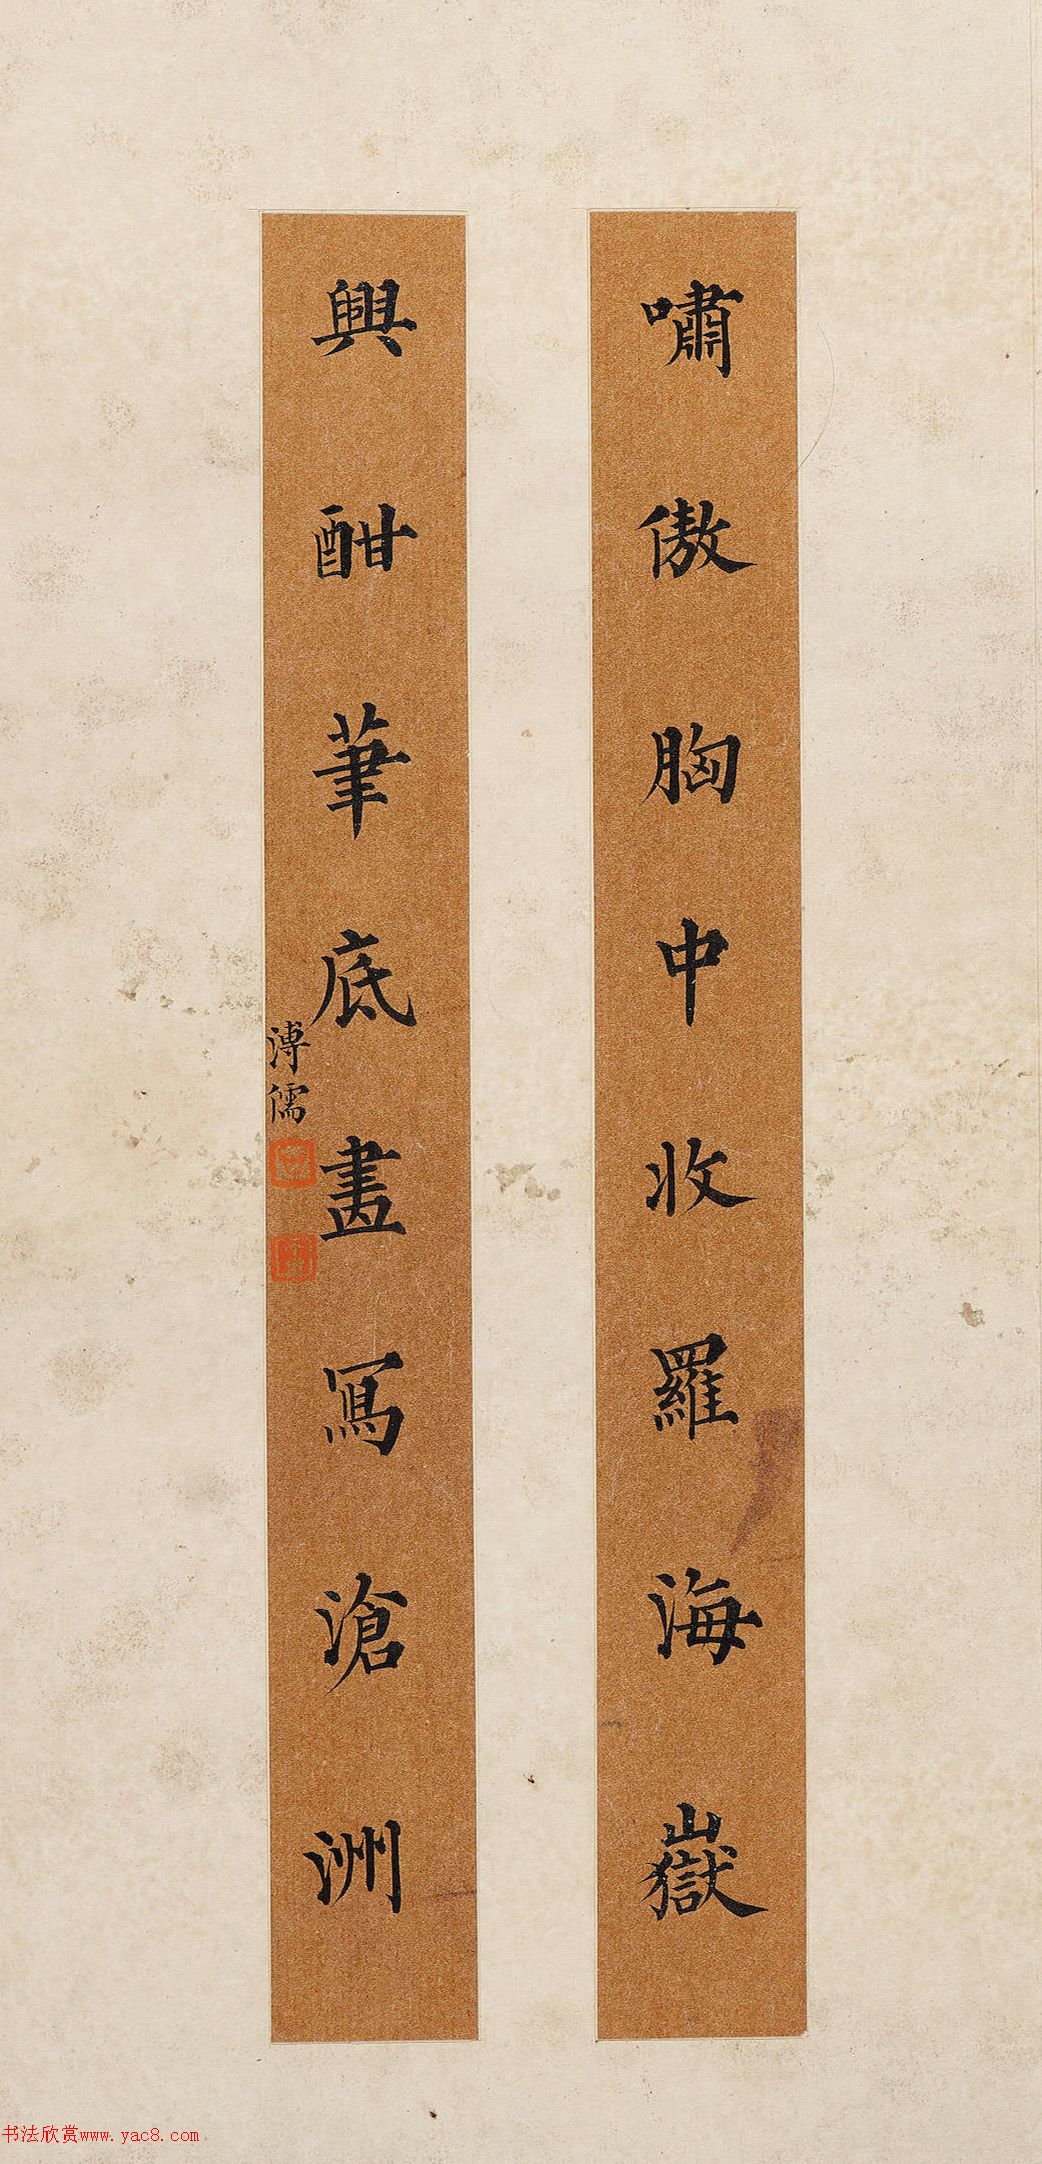 嘯傲胸中收羅海嶽
興酣筆底畫寫滄洲
溥儒
书法欣赏www.yac8.com